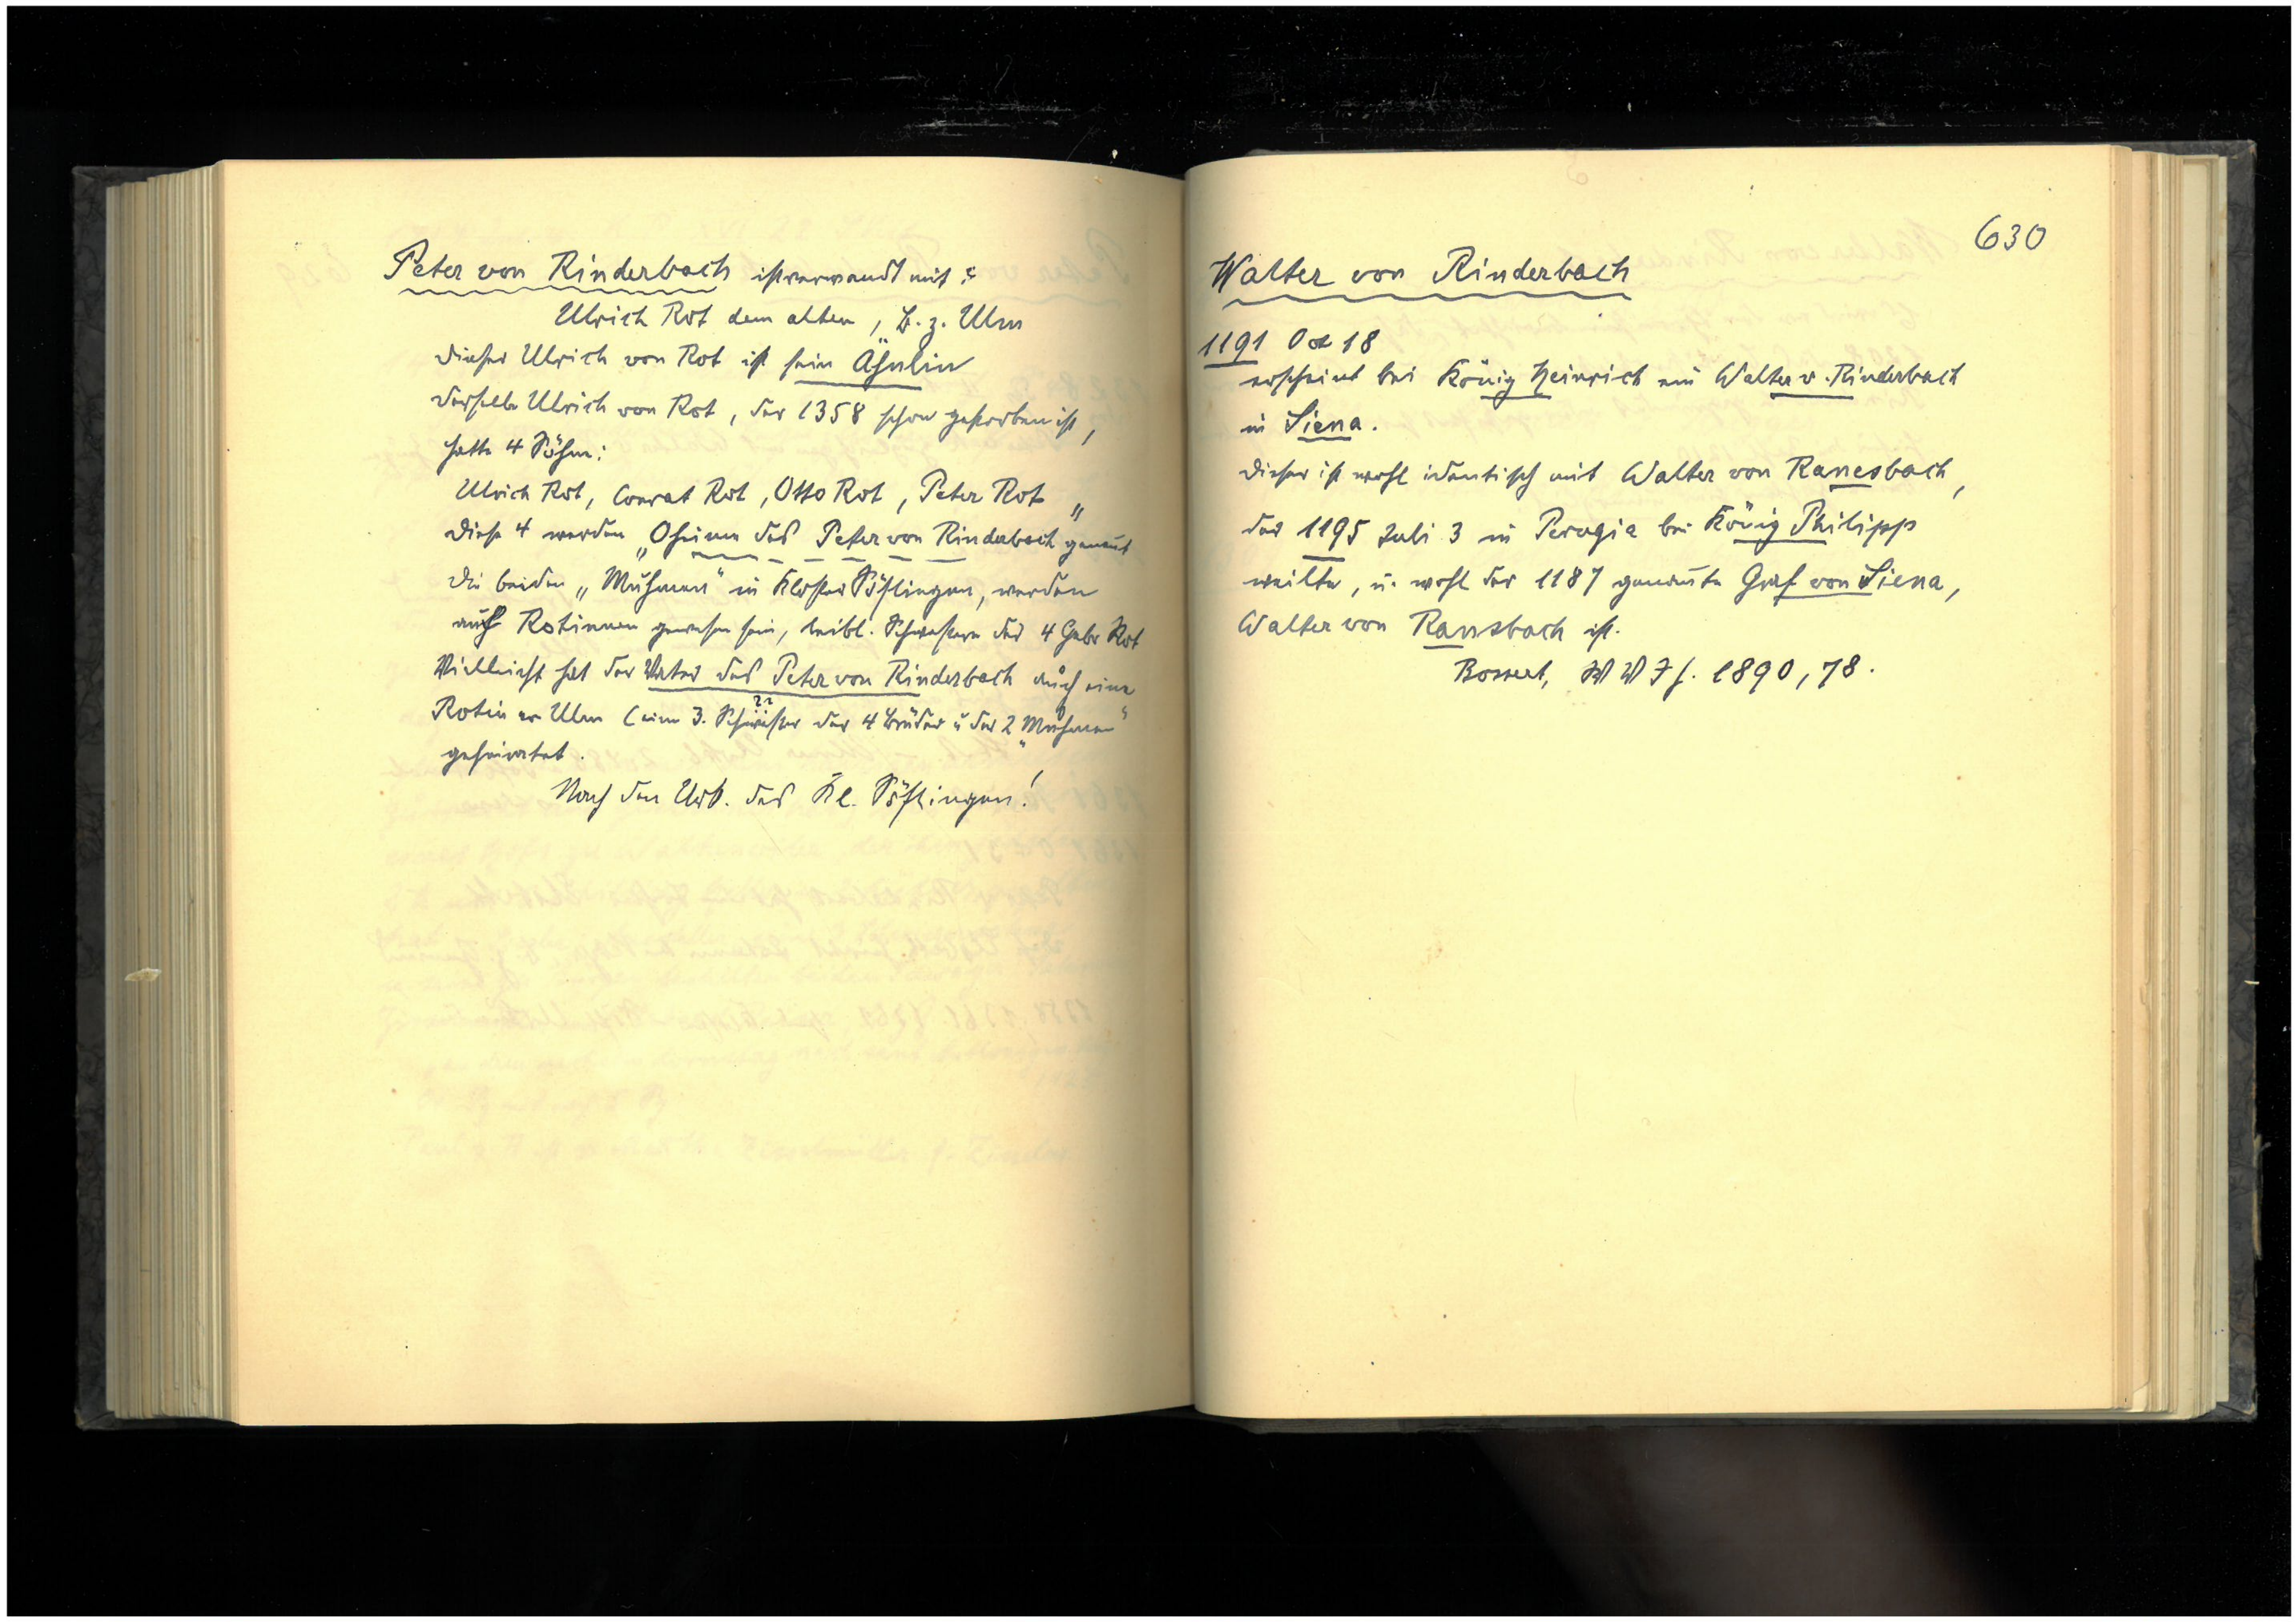 Peter von Rinderbach ist verwandt mit:
Ulrich Rot dem alten, B. z. Ulm
dieser Ulrich von Rot ist sein Ähnlin
derselbe Ulrich von Rot, der 1358 schon gestorben ist,
hatte 4 Söhne:
Ulrich Rot, Conrat Rot, Otto Rot, Peter Rot
diese 4 werden „Oheime des Peter von Rinderbach" genant
die beiden „Muhmen" in Kloster Söflingen, werden
auch Rotinnen gewesen sein, leibl. Schwestern der 4 Gebr Rot
Vielleicht hat der Vater des Peter von Rinderbach auch eine
Rotin v. Ulm (eine 3. Schwester der 4 Brüder u der 2 „Muhmen"
??
geheiratet.
Nach den Urk. des Kl. Söflingen!
630
Walter von Rinderbach
1191 Okt 18
erscheint bei König Heinrich ein Walter v. Rinderbach
in Siena.
dieser ist wohl identisch mit Walter von Ranesbach,
der 1195 Juli 3 in Perugia bei König Philipp
weilte, u. wohl der 1187 genannte Graf von Siena,
Walter von Ransbach ist.
Bossert, W V J h. 1890, 78.